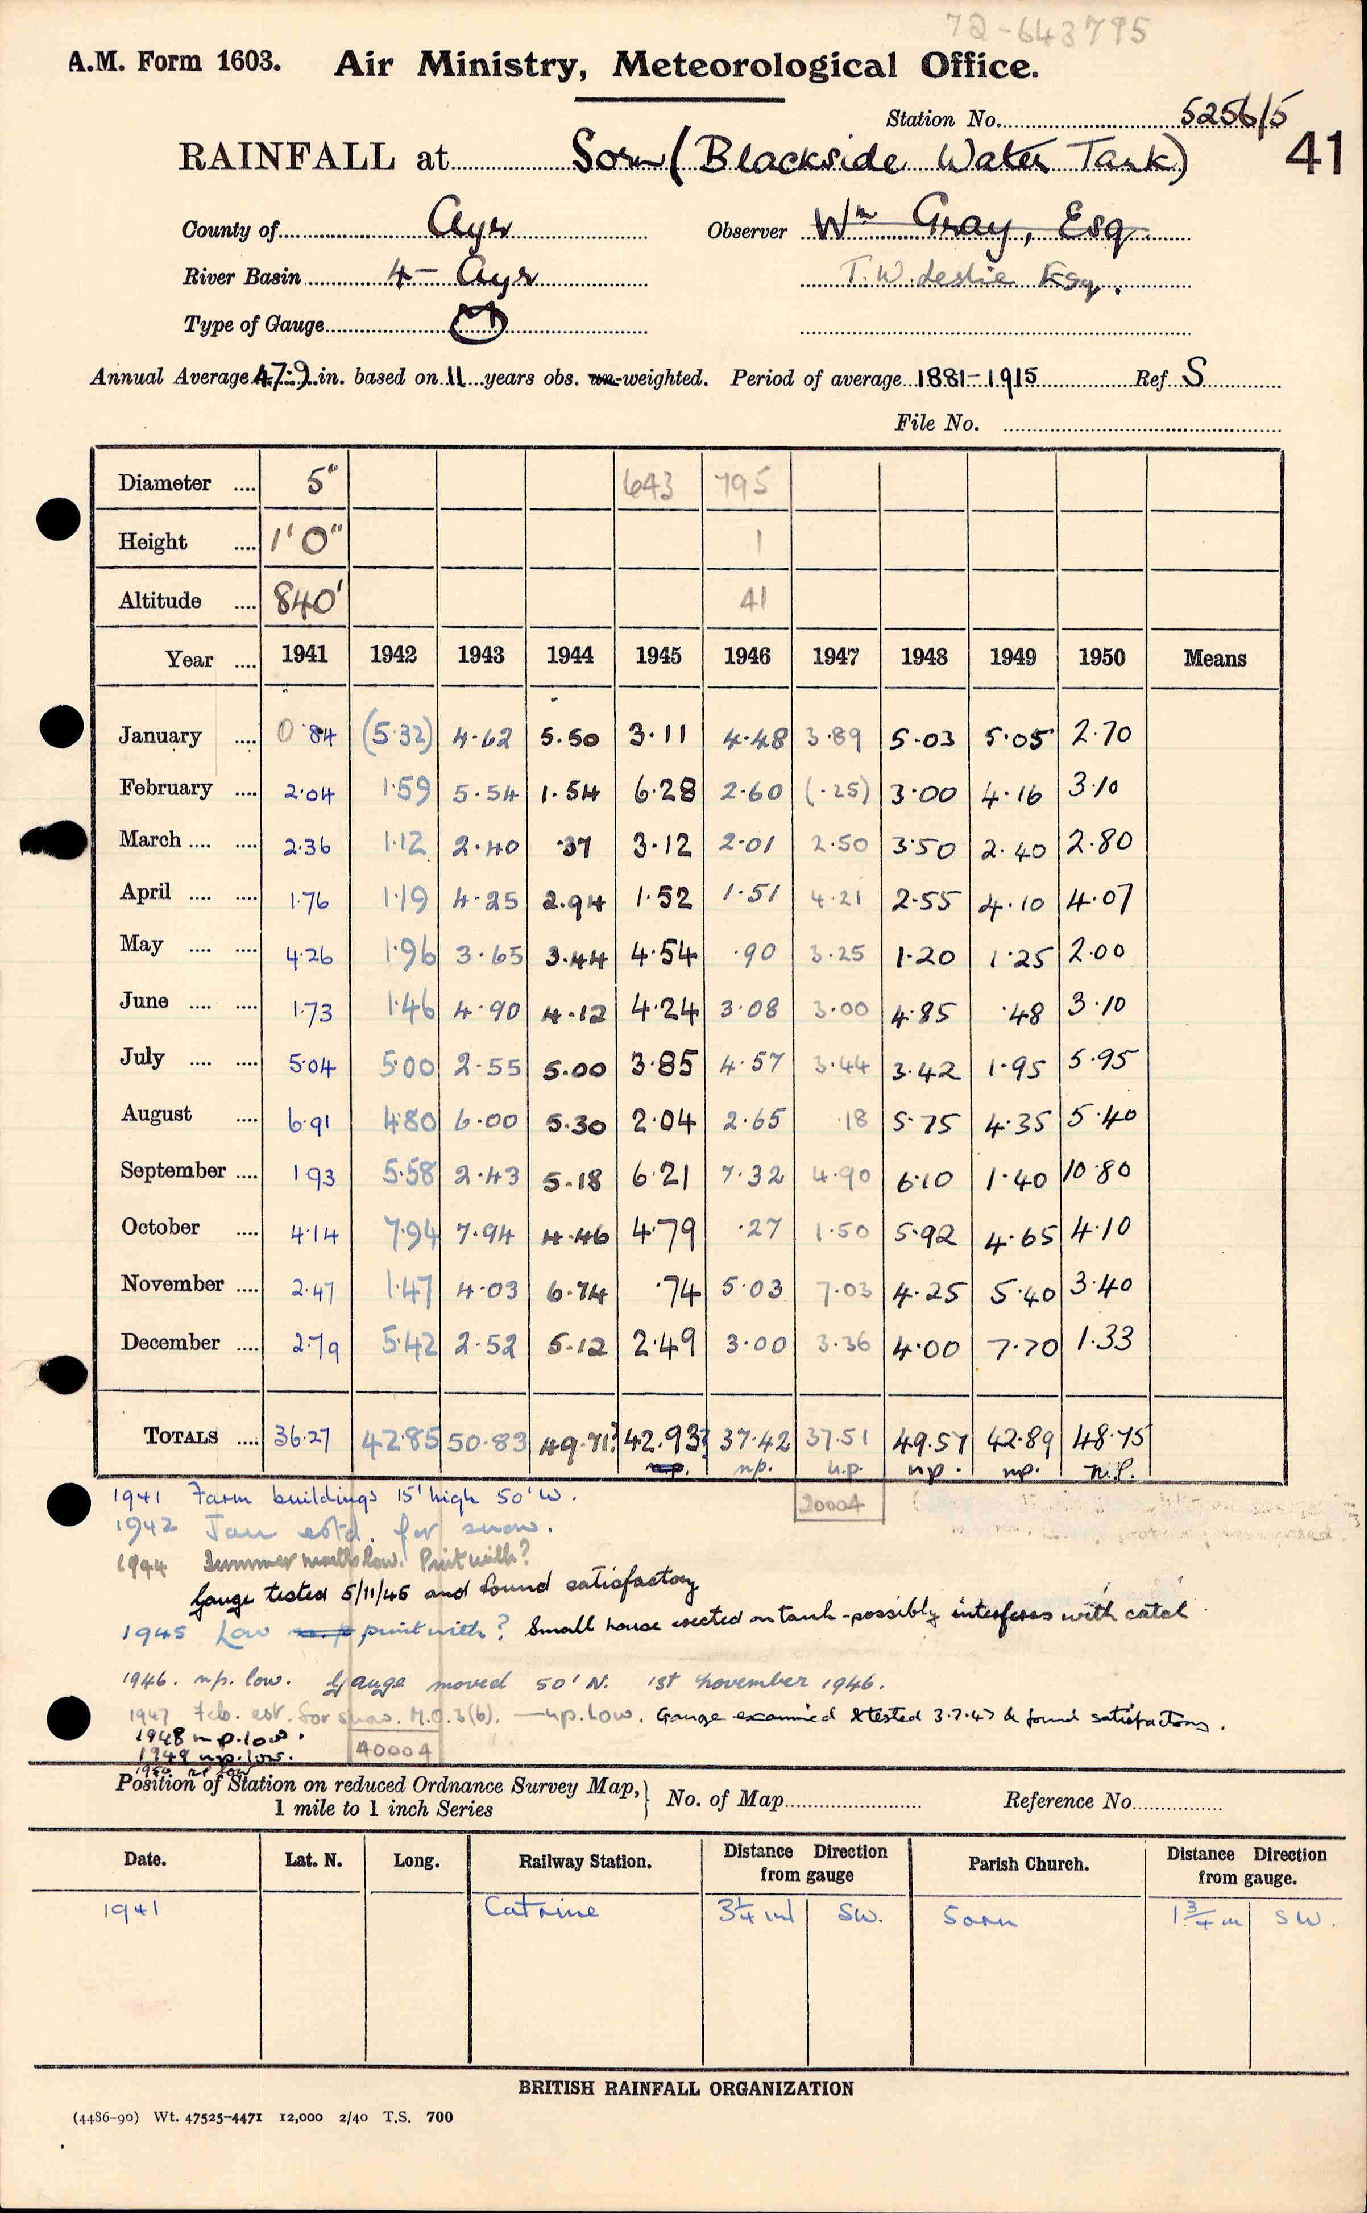 72-643795
A.M. Form 1603. Air Ministry, Meteorological Office.
Station No. 5256/5
RAINFALL at Sorn (Blackside Water Tank) 41
County of Ayr Observer Wm Gray, Esq.
River Basin 4 - Ayr T.W. Leslie Esq.
Type of Gauge M
Annual Average 47.9 in. based on 11 years obs. un-weighted. Period of average 1881-1915 Ref S
File No.
Diameter .... 5" 643 795
Height .... 1'0" 1
Altitude .... 840' 41
Year .... 1941 1942 1943 1944 1945 1946 1947 1948 1949 1950 Means
January .... 0.84 (5.32) 4.62 5.50 3.11 4.48 3.89 5.03 5.05 2.70
February .... 2.04 1.59 5.54 1.54 6.28 2.60 (.25) 3.00 4.16 3.10
March .... .... 2.36 1.12 2.40 .37 3.12 2.01 2.50 3.50 2.40 2.80
April .... .... 1.76 1.19 4.25 2.94 1.52 1.51 4.21 2.55 4.10 4.07
May .... .... 4.26 1.96 3.65 3.44 4.54 .90 3.25 1.20 1.25 2.00
June .... .... 1.73 1.46 4.90 4.12 4.24 3.08 3.00 4.85 .48 3.10
July .... .... 5.04 5.00 2.55 5.00 3.85 4.57 3.44 3.42 1.95 5.95
August .... 6.91 4.80 6.00 5.30 2.04 2.65 .18 5.75 4.35 5.40
September .... 1.93 5.58 2.43 5.18 6.21 7.32 4.90 6.10 1.40 10.80
October .... 4.14 7.94 7.94 4.46 4.79 .27 1.50 5.92 4.65 4.10
November .... 2.47 1.47 4.03 6.74 .74 5.03 7.03 4.25 5.40 3.40
December .... 2.79 5.42 2.52 5.12 2.49 3.00 3.36 4.00 7.70 1.33
TOTALS .... 36.27 42.85 50.83 49.71? 42.93? 37.42 37.51 49.57 42.89 48.75
n.p. n.p. n.p. n.p. n.p. n.p.
1941 Farm buildings 15' high 50' W. 20004
1942 Jan estd. for snow.
1944 Summer months low. Print with?
Gauge tested 5/11/45 and found satisfactory
1945 Low n.p. print with? Small house erected on tank - possibly interferes with catch
1946. n.p. low. Gauge moved 50' N. 1st November 1946.
1947 Feb. est. for snow. M.O.3(b). — n.p. low. Gauge examined & tested 3.7.47 & found satisfactory.
1948 n.p. low.
1949 n.p. low. 40004
1950 np low
Position of Station on reduced Ordnance Survey Map, } No. of Map Reference No.
1 mile to 1 inch Series
Date. Lat. N. Long. Railway Station. Distance Direction from gauge Parish Church. Distance Direction from gauge.
1941 Catrine 3¼ m SW. Sorn 1¾ m SW.
BRITISH RAINFALL ORGANIZATION
(4486-90) Wt. 47525-4471 12,000 2/40 T.S. 700